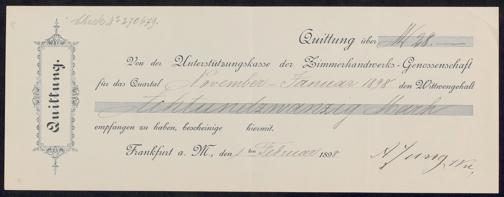 Check No 270629.
Quittung über M 28.—
Quittung.
Von der Unterstützungskasse der Zimmerhandwerks-Genossenschaft
für das Quartal November – Januar 1898 den Wittwengehalt
Achtundzwanzig Mark
empfangen zu haben, bescheinige hiermit.
Frankfurt a. M., den 1ten Februar 1898
A. Jung Wwe,